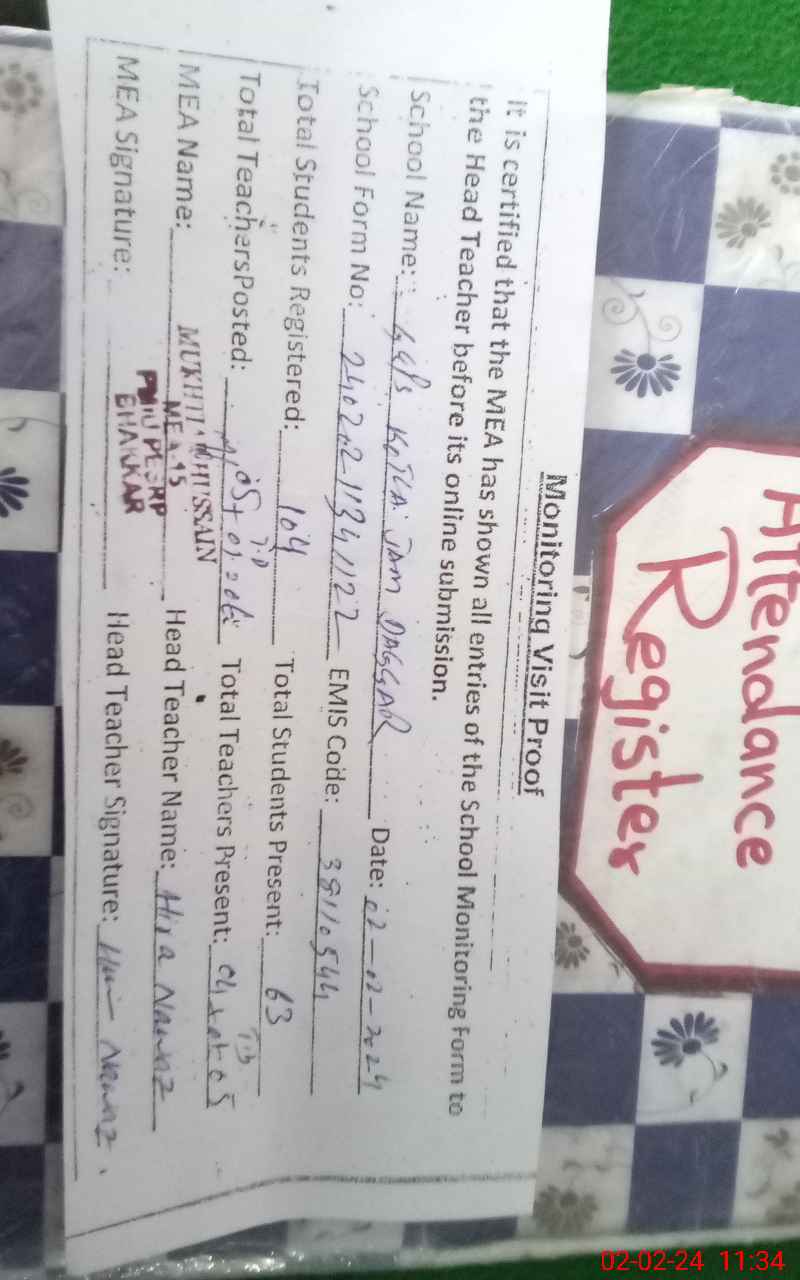 Attendance
Register
Monitoring Visit Proof
It is certified that the MEA has shown all entries of the School Monitoring Form to
the Head Teacher before its online submission.
School Name: GGPS KOTLA JAM DAGGAR Date: 02-02-2024
School Form No: EMIS Code: 38110544
Total Students Registered: 104 Total Students Present: 63
Total Teachers Posted: 05+01 Total Teachers Present:
MEA Name: MUKHTIAR HUSSAIN Head Teacher Name: Hira Nawaz
MEA 95
PMIU PESRP
BHAKKAR
MEA Signature: Head Teacher Signature: Nawaz
02-02-24 11:34